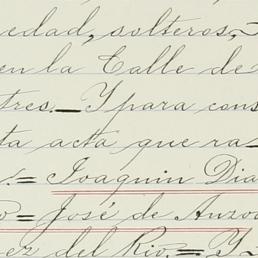 edad, solteros,
en la Calle de
tres.— Y para cons
ta acta que ra—
.= Joaquin Dia
o = José de Anzo
ez del Rio. = Y